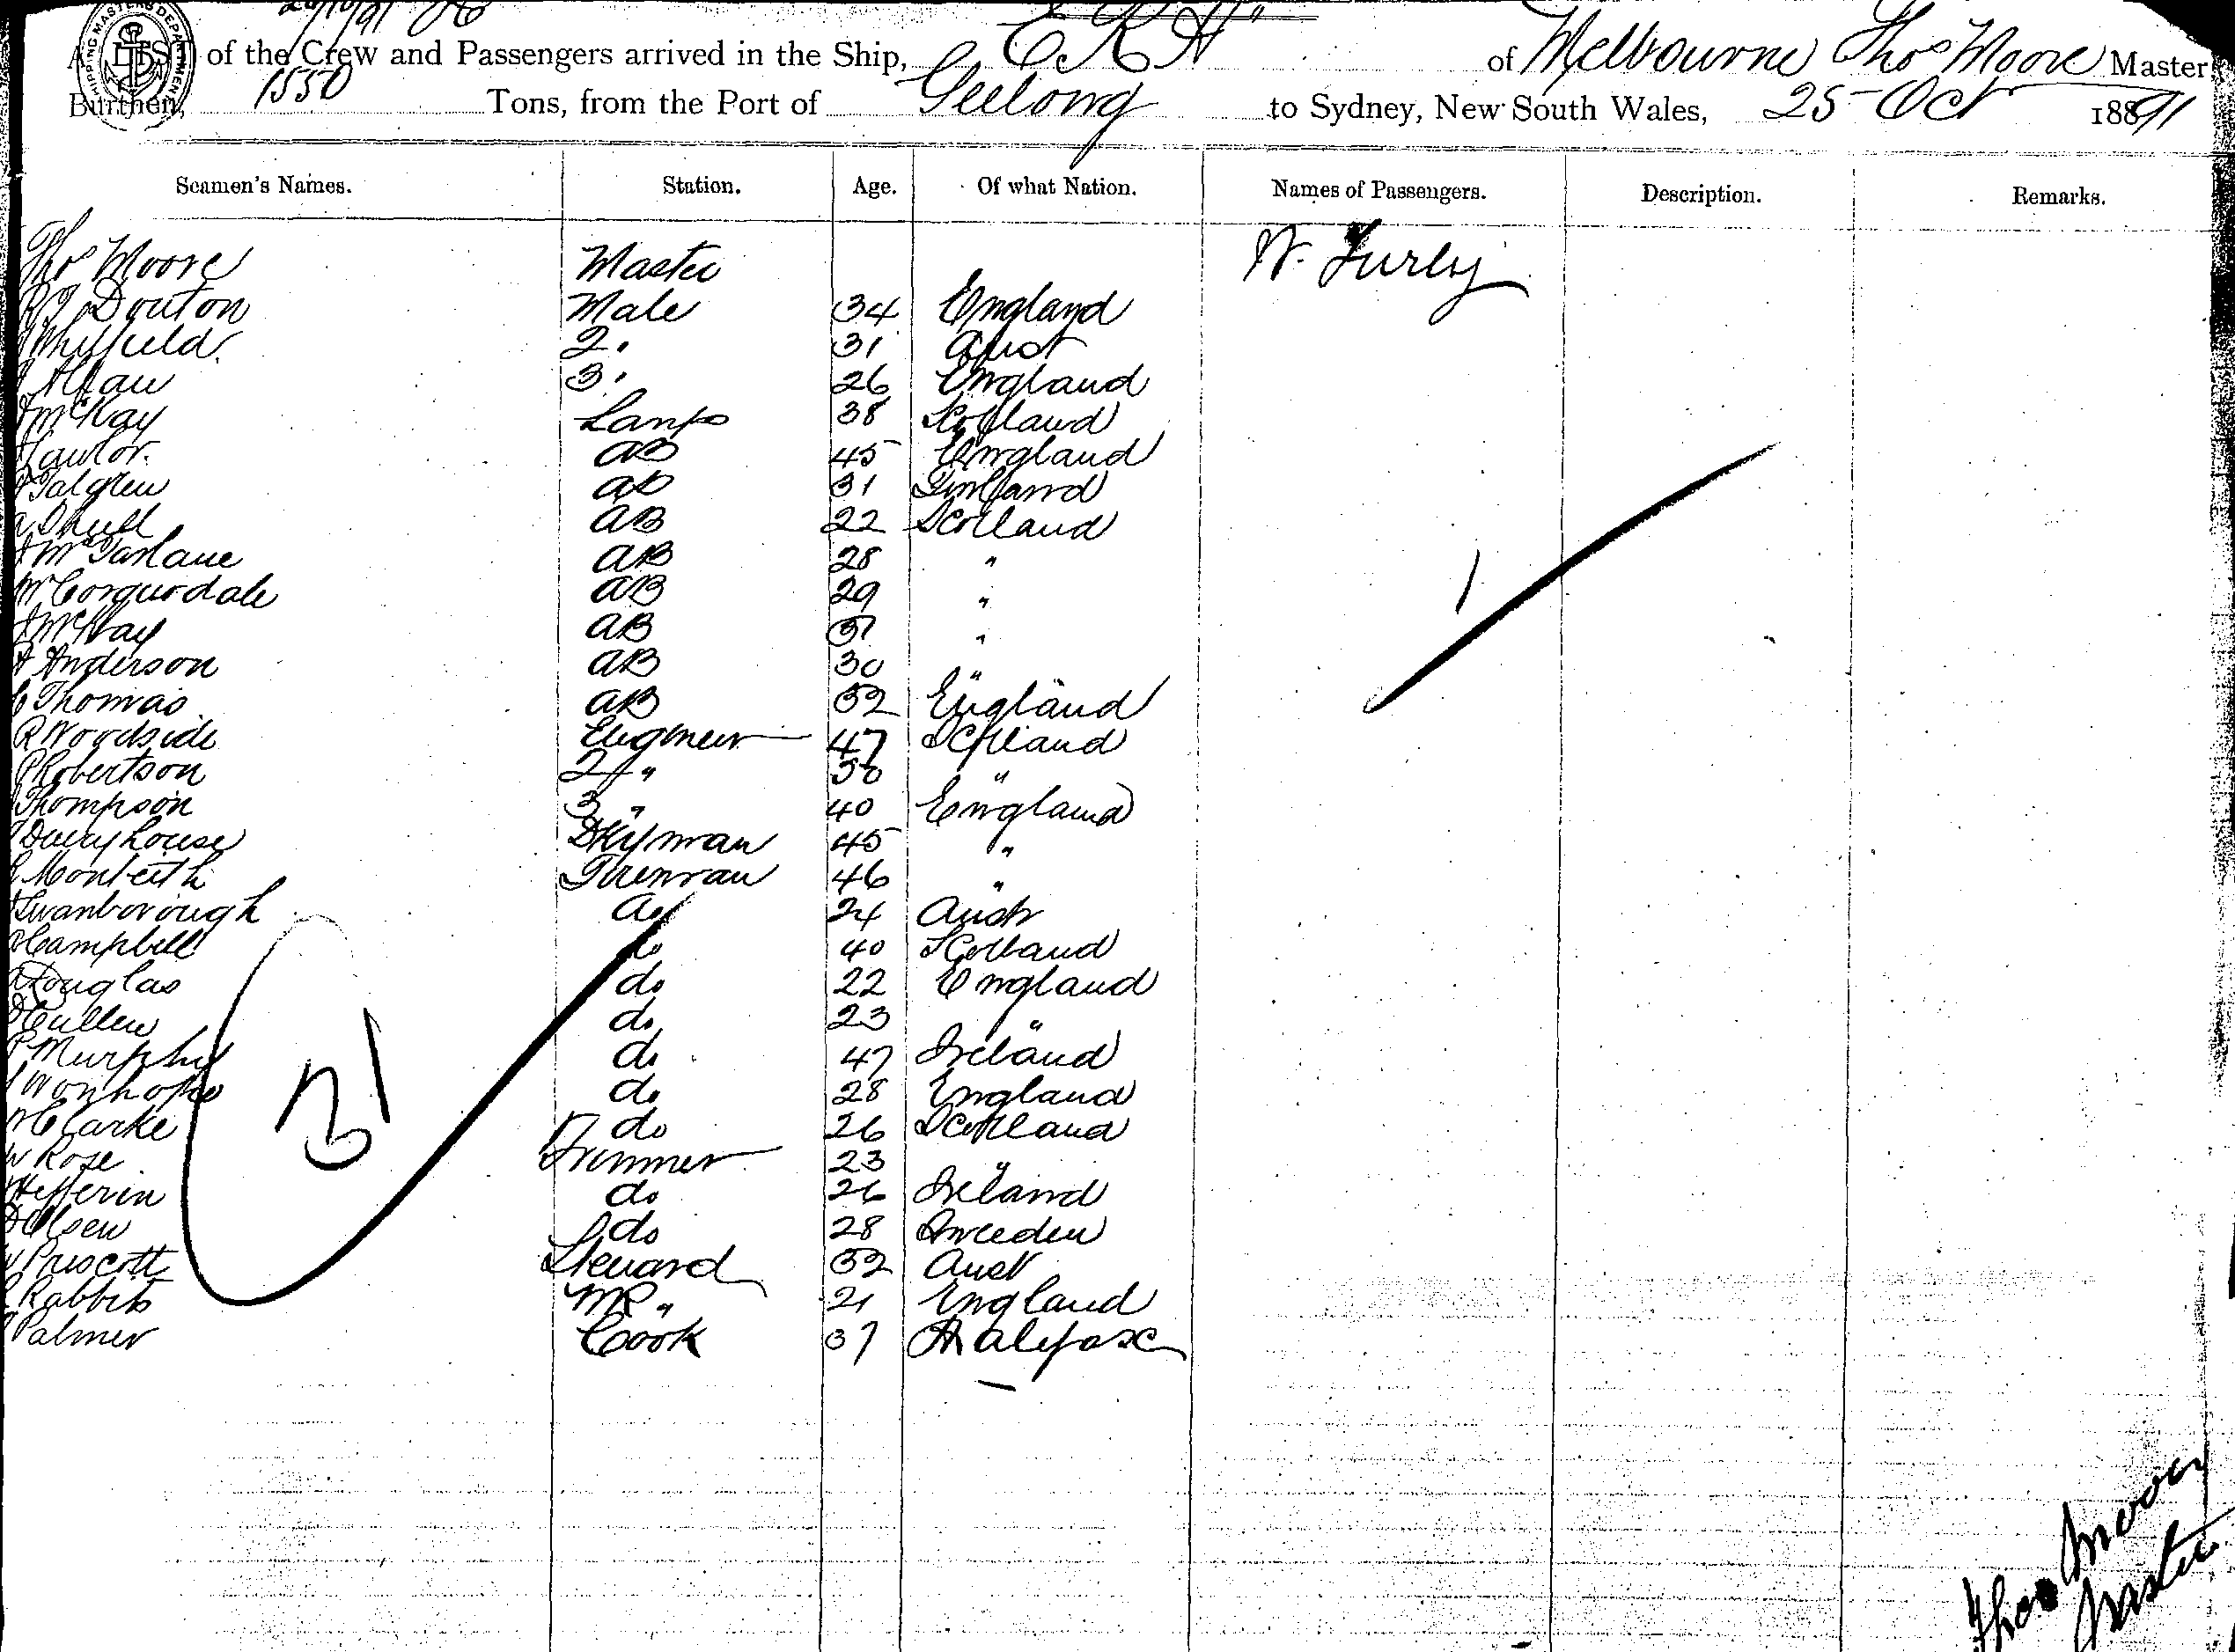 A LIST of the Crew and Passengers arrived in the Ship, of Melbourne Thos Moore Master
Burthen, 1550 Tons, from the Port of Geelong to Sydney, New South Wales, 25 Oct 1891
Seamen's Names. Station. Age. Of what Nation. Names of Passengers. Description. Remarks.
Thos Moore Master W. Furley
Douton Mate 34 England
2. 31 Aust
3. 26 England
McKay Lamps 38 Scotland
Lawlor. AB 45 England
AB 31 Finland
AB 22 Scotland
McFarlane AB 28 "
McCorquodale AB 29 "
McKay AB "
A Anderson AB 30 "
C Thomas AB 32 England
R Woodside Engineer 47 Scotland
P Robertson 2 " "
Thompson 3 " 40 England
Dkyman 45 "
Monteith Fireman 46 "
Swanborough do 24 Austr
Campbell do 40 Scotland
Douglas do 22 England
Cullen do 23 "
P Murphy do 47 Ireland
do 28 England
Clarke do 26 Scotland
W Rose Trimmer 23 "
Hefferin do 26 Ireland
Olsen do 28 Sweden
W Priscott Steward 32 Aust
Rabbits MR " 21 England
Palmer Cook 37 Halifax
31
1
Thos Moore
Master